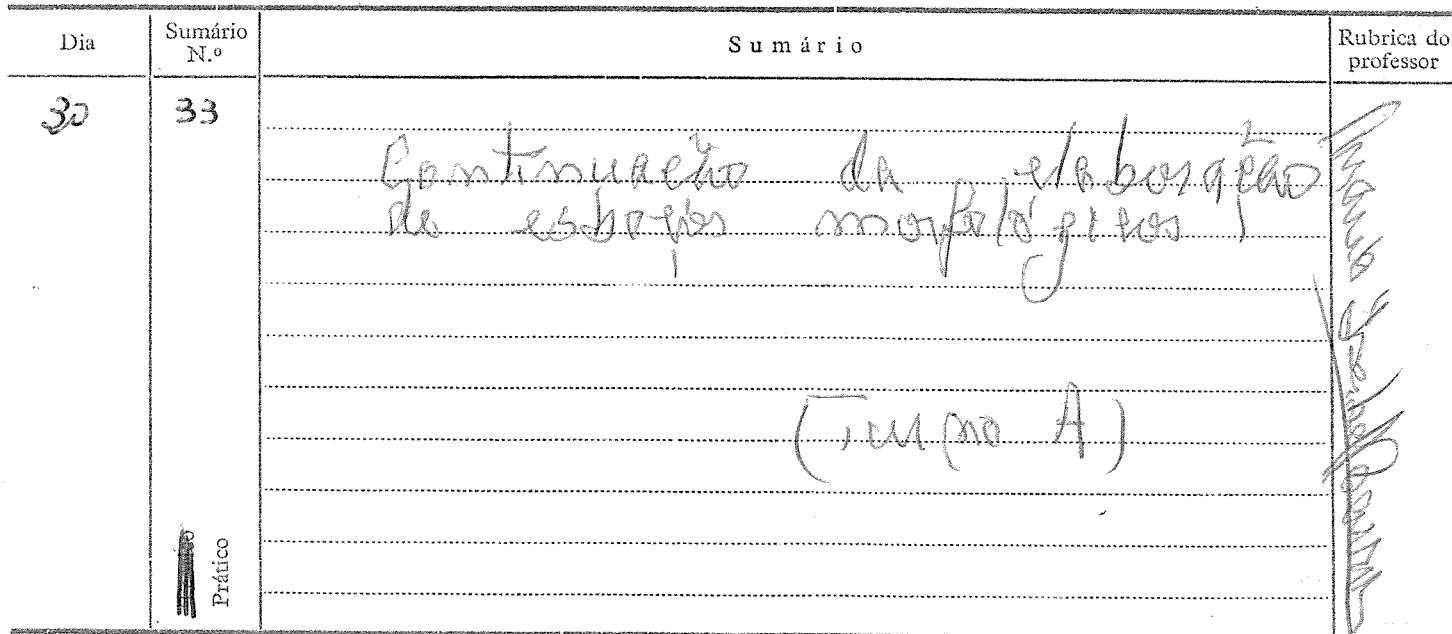 Dia
Sumário
N.º
Sumário
Rubrica do
professor
30
33
Continuação da elaboração
de esboços morfológicos
(Turno A)
Prático